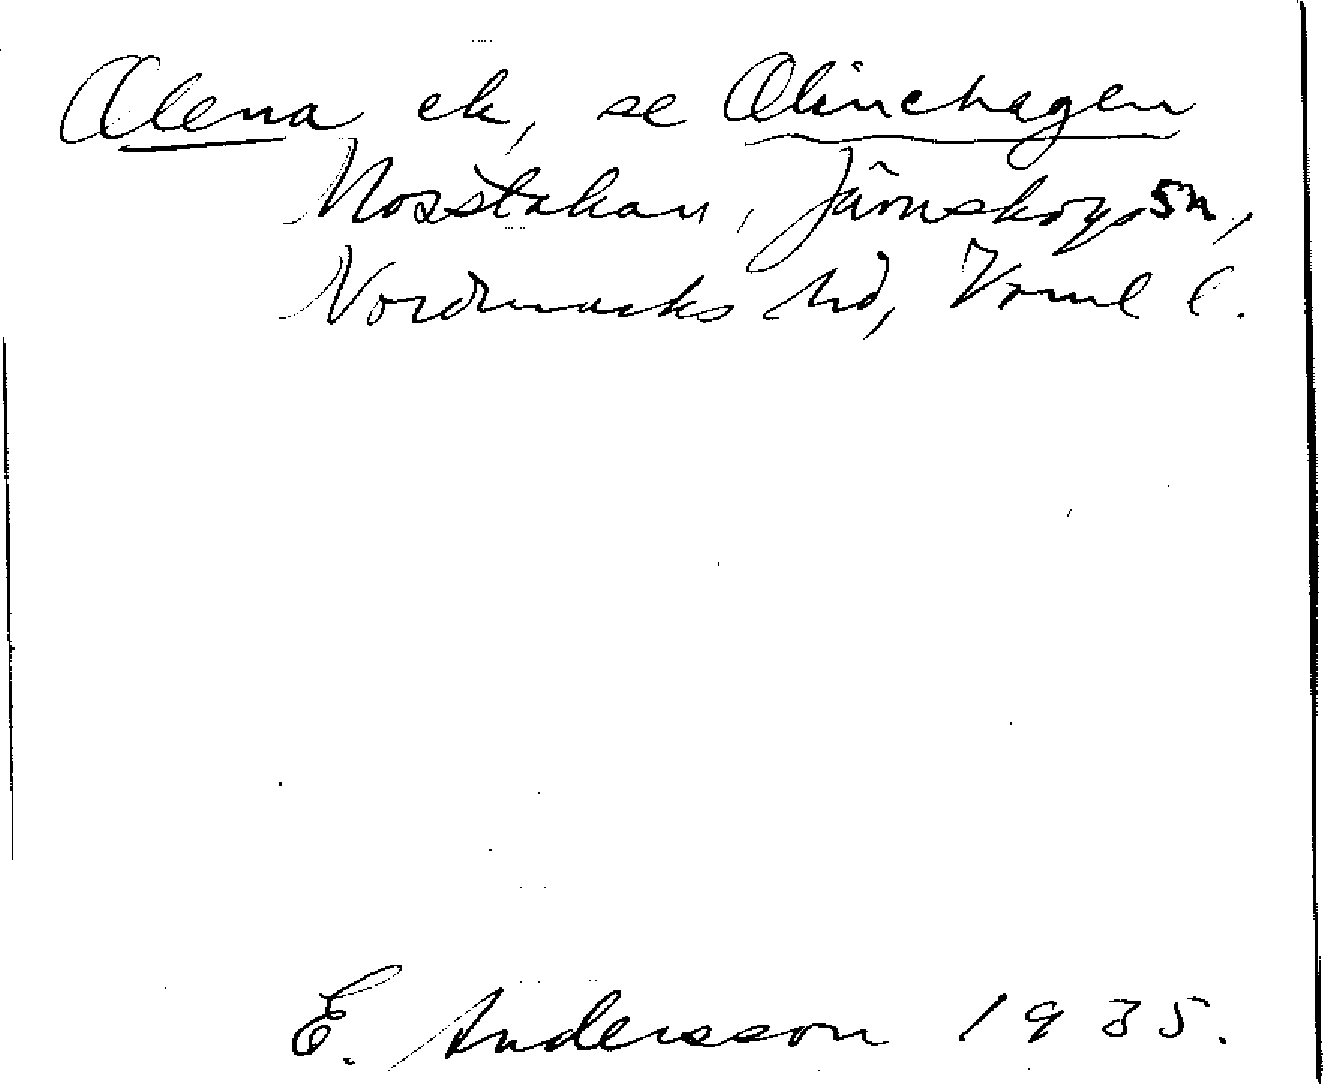 Alena ek, se Alinehagen
Nosstakan, Järnskogs sn,
Nordmarks hd, Vrml l.
E. Andersson 1935.